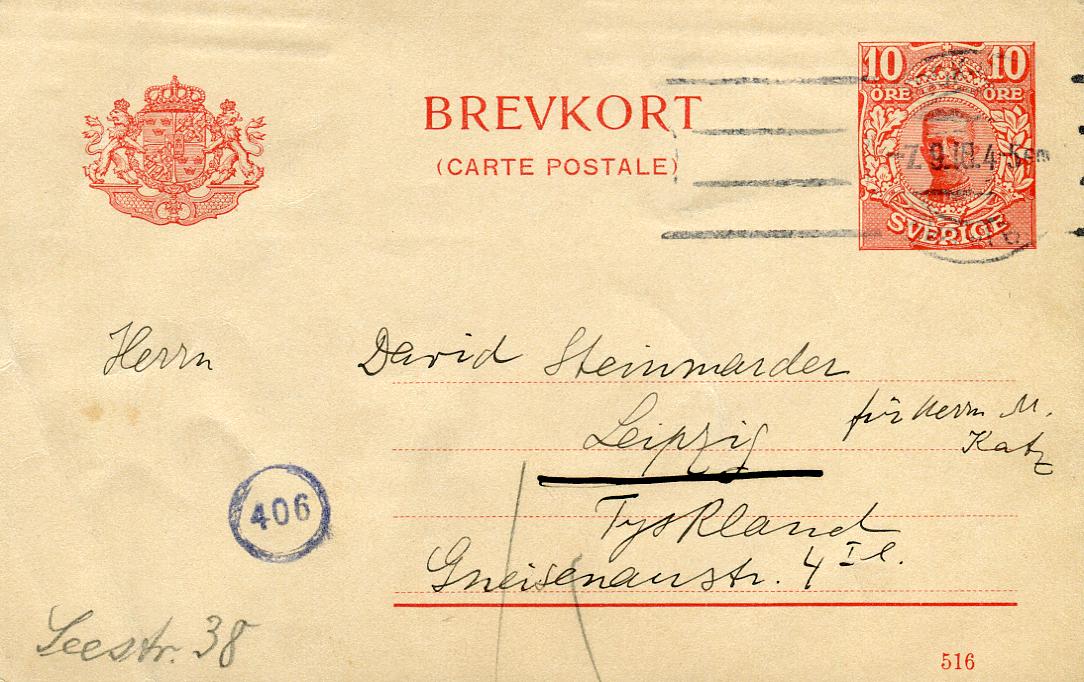 BREVKORT
(CARTE POSTALE)
10 10
ÖRE ÖRE
SVERIGE
-7.9.18.4-5em
Herrn David Steinmarder
Leipzig
für Herrn M.
Katz
Tyskland
Gneisenaustr. 4 I l.
406
Seestr. 38
516